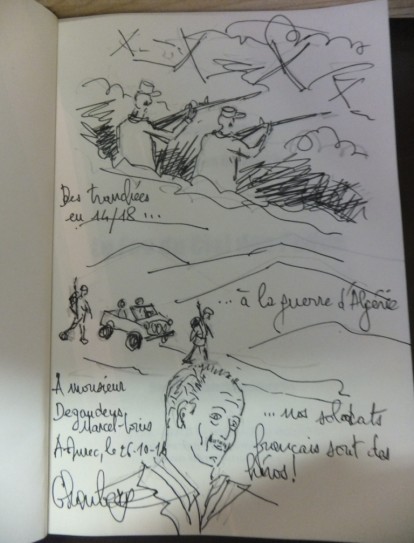 Des tranchées
en 14/18 ...
... à la guerre d'Algérie
À monsieur
Degandeys
Marcel-Louis
A le 26-10-18
... nos soldats
français sont des
héros!